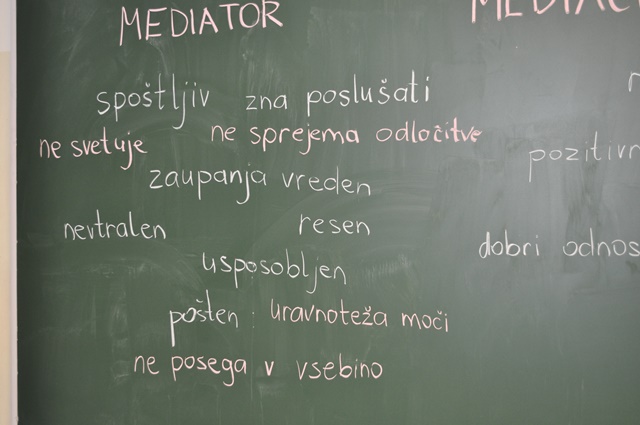 MEDIATOR
spoštljiv zna poslušati
ne svetuje ne sprejema odločitve
zaupanja vreden
nevtralen resen
usposobljen
pošten uravnoteža moči
ne posega v vsebino
dobri